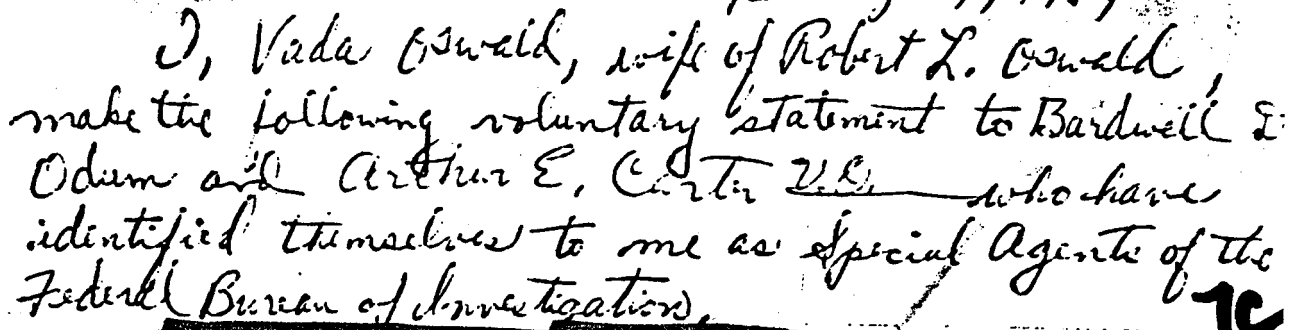 I, Vada Oswald, wife of Robert L. Oswald,
make the following voluntary statement to Bardwell D.
Odum and Arthur E. Carter V.O. who have
identified themselves to me as Special Agents of the
Federal Bureau of Investigation.